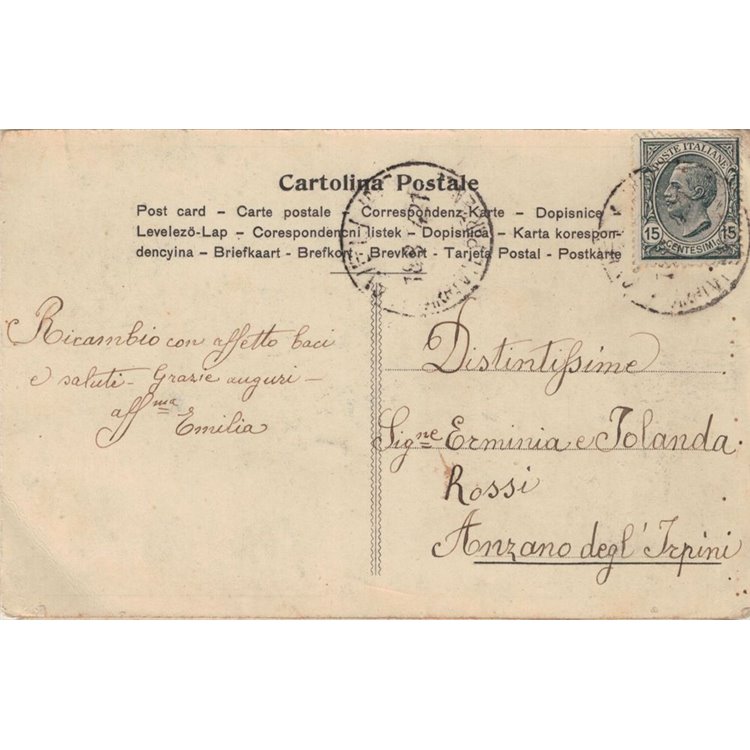 Cartolina Postale
Post card – Carte postale – Correspondenz-Karte – Dopisnice
Levelezö-Lap – Corespondencni listek – Dopisnica – Karta korespon-
dencyina – Briefkaart - Brefkort - Brevkort - Tarjeta Postal - Postkarte
POSTE ITALIANE
15 15
CENTESIMI
Ricambio con affetto baci
e saluti - Grazie auguri -
aff.ma
Emilia
Distintissime
Sig.ne Erminia e Iolanda
Rossi
Anzano degl' Irpini